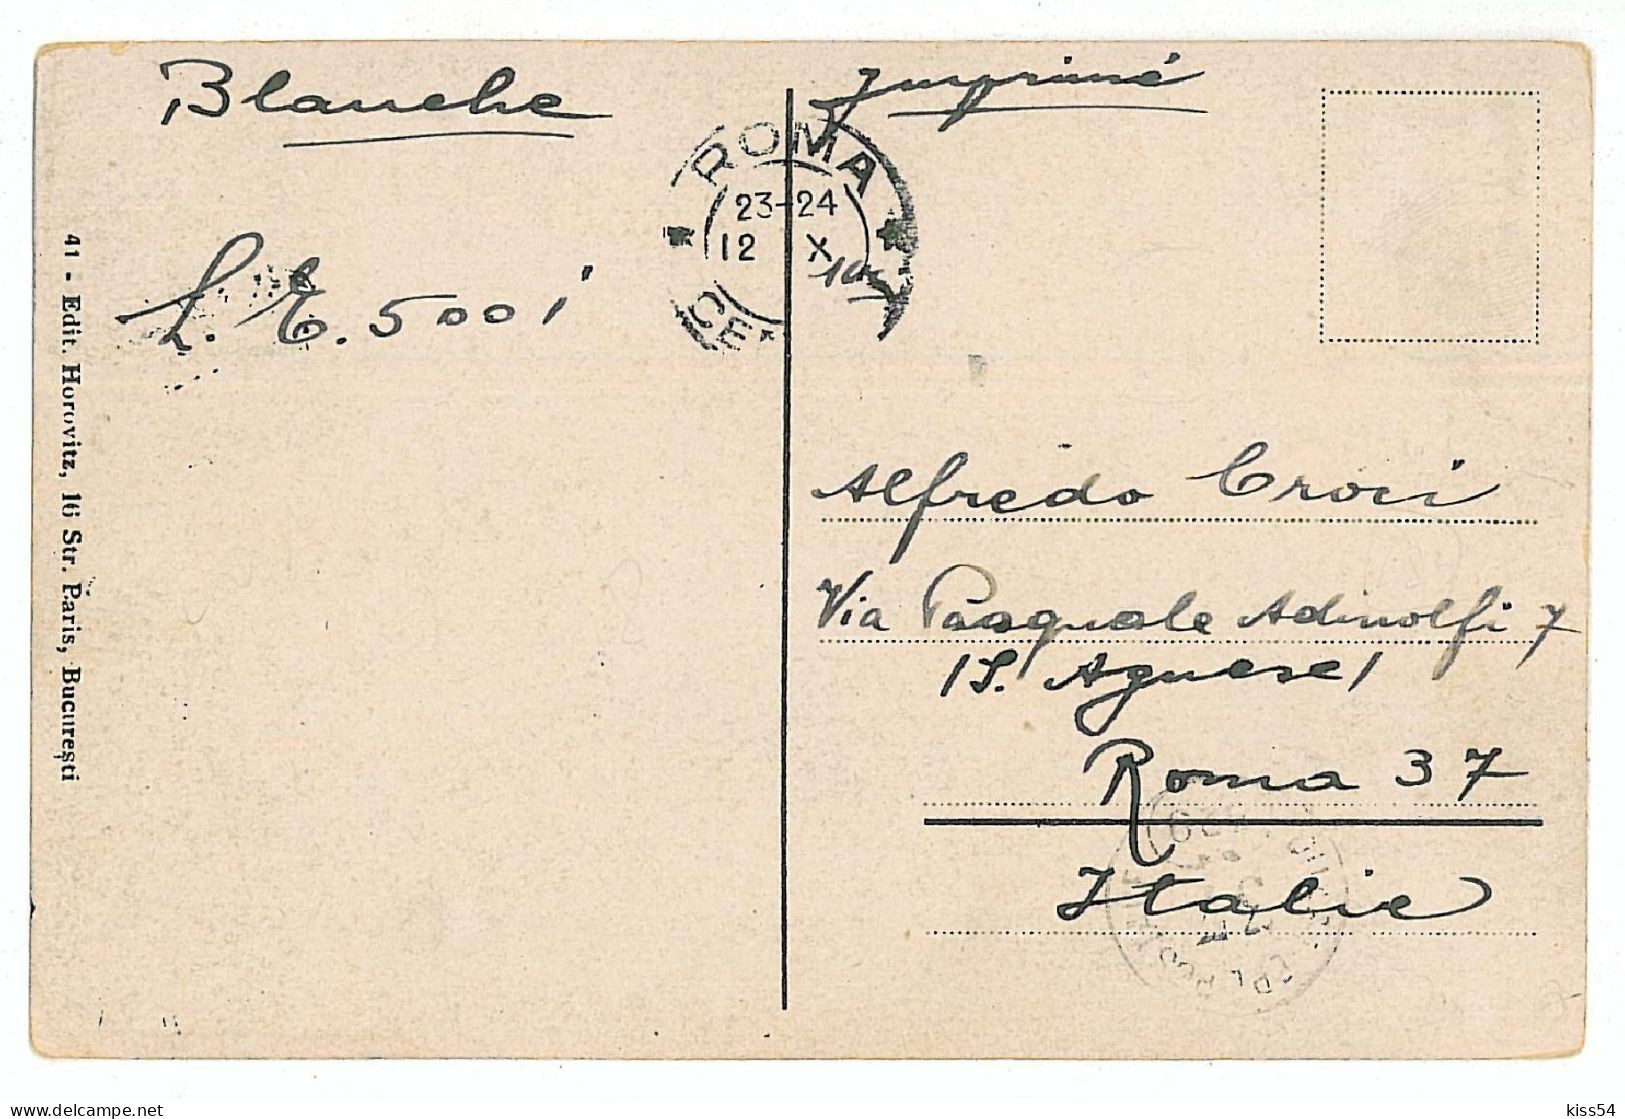 Blanche
Imprimé
L. E. 5001
ROMA
23-24
12 X
CE
Alfredo Croci
Via Pasquale Adinolfi 7
/S. Agnese/
Roma 37
Italie
41 - Edit. Horovitz, 16 Str. Paris, București
delcampe.net
kiss54